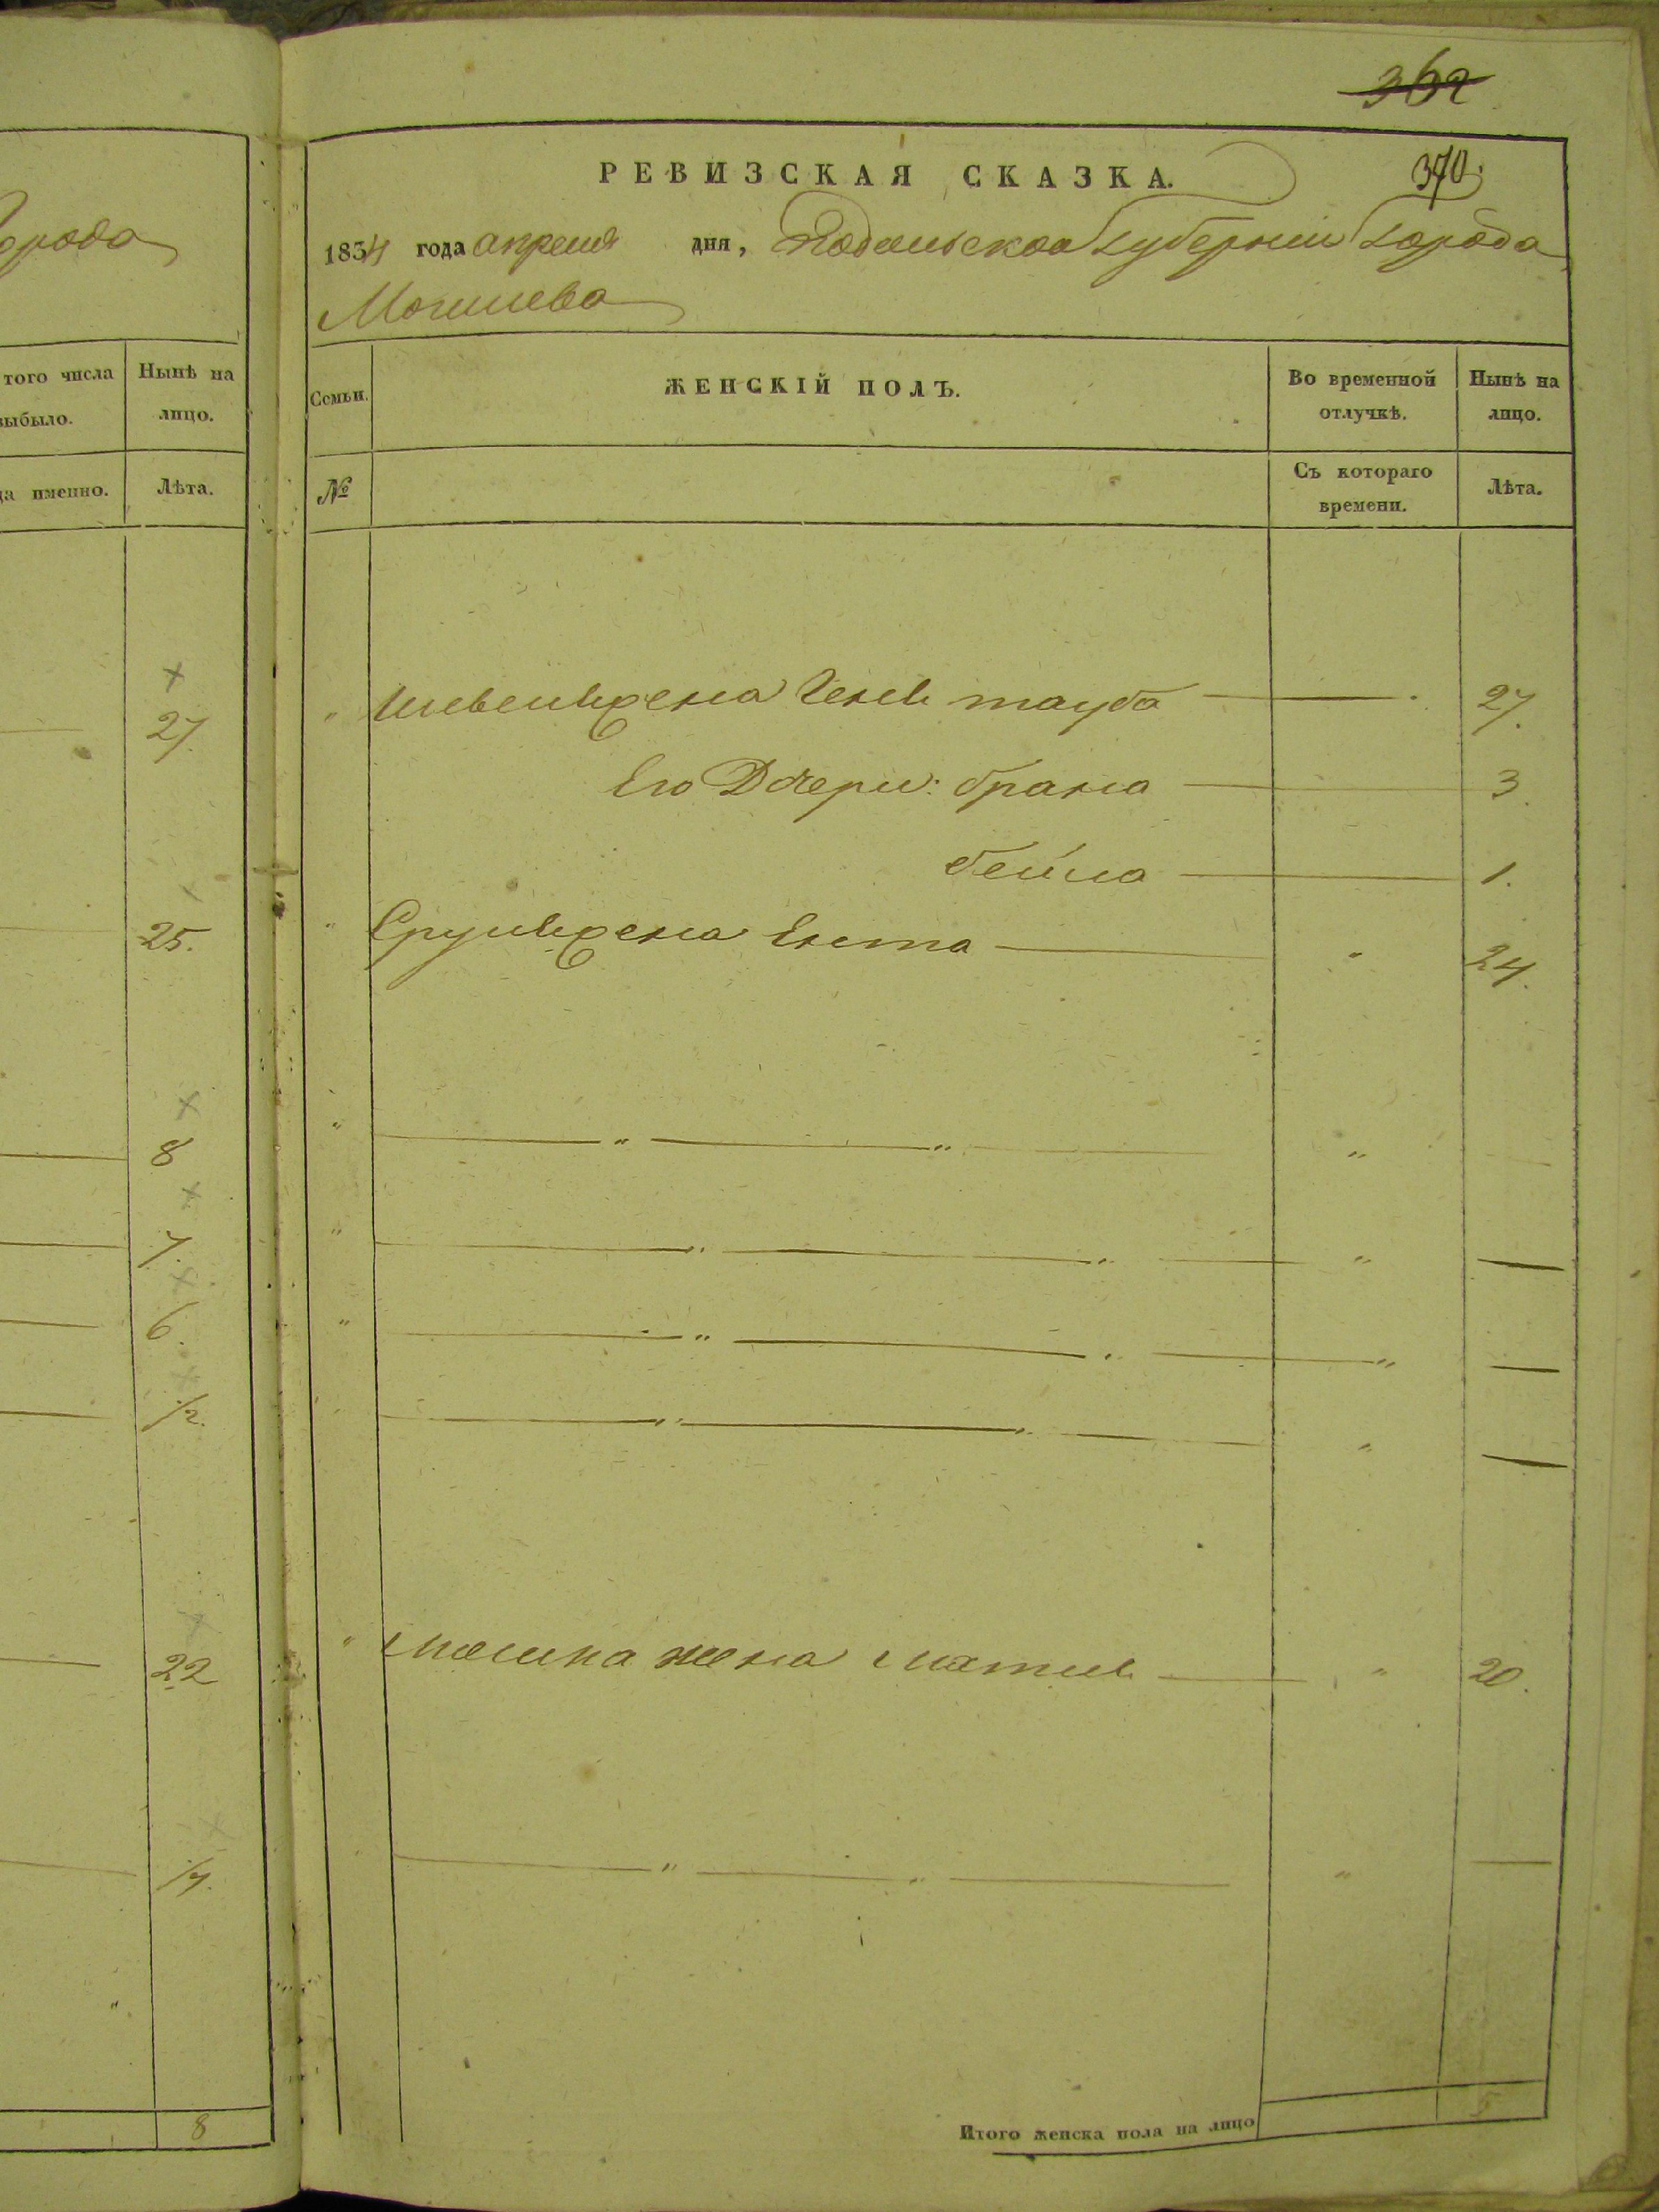 орода
того числа
выбыло.
Нынѣ на
лицо.
да именно.
Лѣта.
27
25.
8
7.
6.
1/2.
22
17.
8
362
РЕВИЗСКАЯ СКАЗКА.
370.
1834 года апреля дня, Подольской Губернии Города
Могилева
Семьи.
ЖЕНСКІЙ ПОЛЪ.
Во временной
отлучкѣ.
Нынѣ на
лицо.
№
Съ котораго
времени.
Лѣта.
жена Геня тауба 27.
Его Дочери: брана 3.
бейла 1.
Сруля жена Ента 24.
жена 20.
Итого женска пола на лицо 5